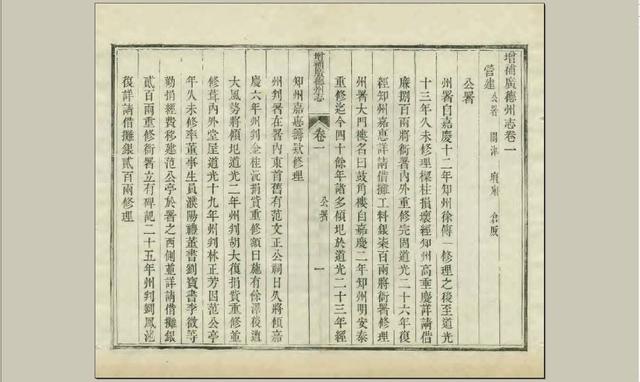 增補廣德州志卷一
營建 公署 關津 廟 倉厫
公署
州署自嘉慶十二年知州徐傳一修理之後至道光
十三年久未修理樑柱損壞經知州高重慶詳請借
廉捌百兩將衙署內外重修完固道光二十六年復
經知州嘉惠詳請借攤工料銀柒百兩將衙署修理
州署大門樓名曰鼓角樓自嘉慶二年知州明安泰
重修迄今四十餘年諸多傾圯於道光二十三年經
增補廣德州志 卷一 公署 一
知州嘉惠籌款修理
州判署在署內東首舊有范文正公祠日久將傾嘉
慶六年州判金桂沅捐資重修額曰施有餘澤後遭
大風勢將傾地道光二年州判胡大復捐資重修董
修葺內外堂屋道光十九年州判林正芳因范公亭
年久未修率董事生員濮陽禮董書劉寶書李徵等
勸捐經費移建范公亭於署之西側董詳請借攤銀
貳百兩重修衙署立有碑記二十五年州判劉鳳池
復詳請借攤銀貳百兩修理